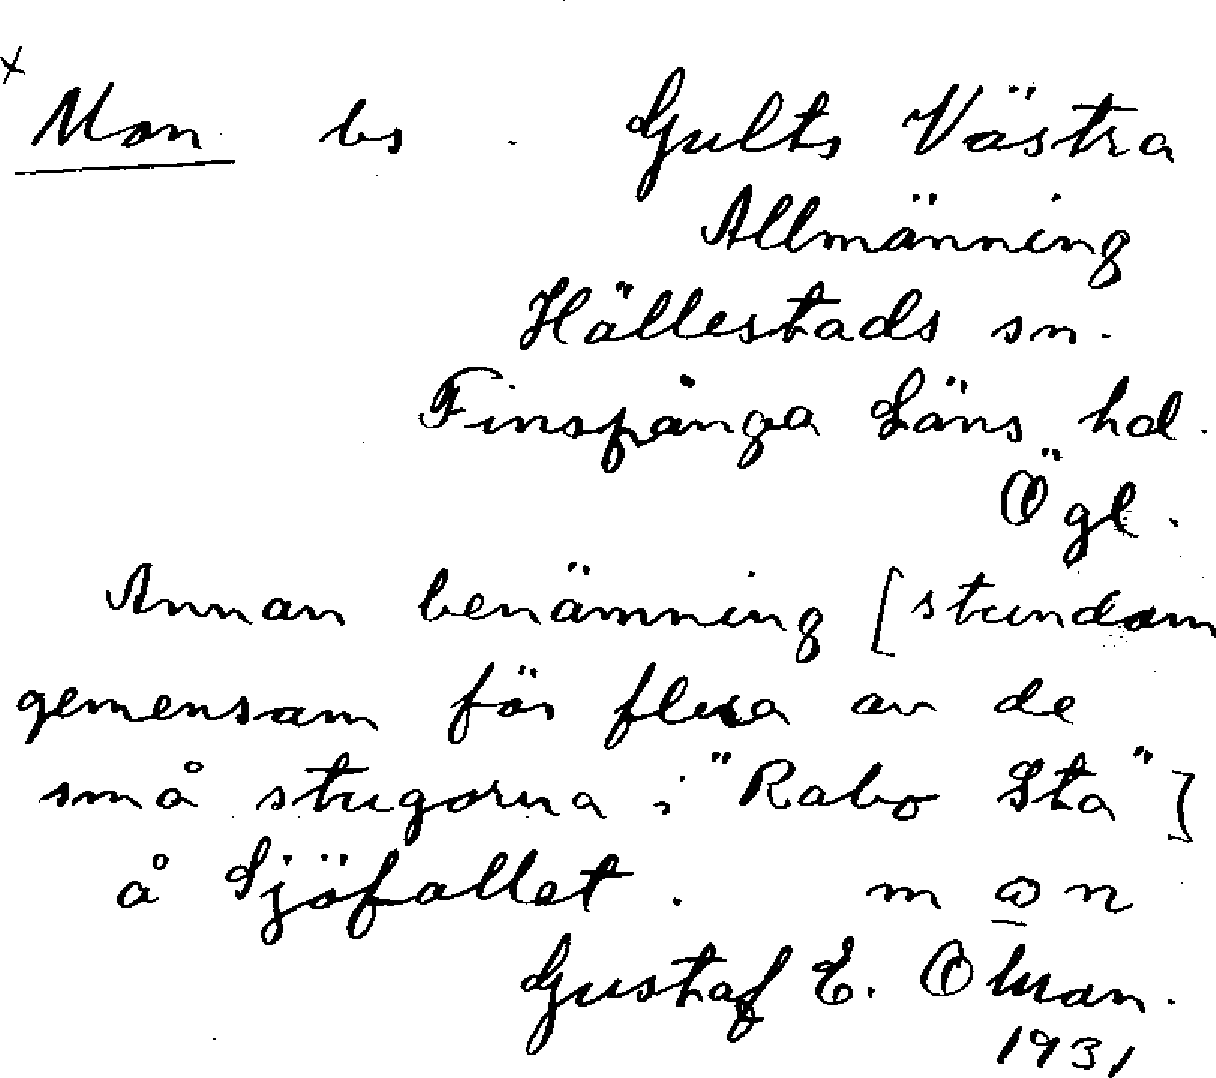 x
Mon bs. Gults Västra
Allmänning
Hällestads sn.
Finspånga Läns hd.
Ögl.
Annan benämning [stundom
gemensam för flera av de
små stugorna i "Rabo Sta"]
å Sjöfallet. m o n
Gustaf E. Olman.
1931